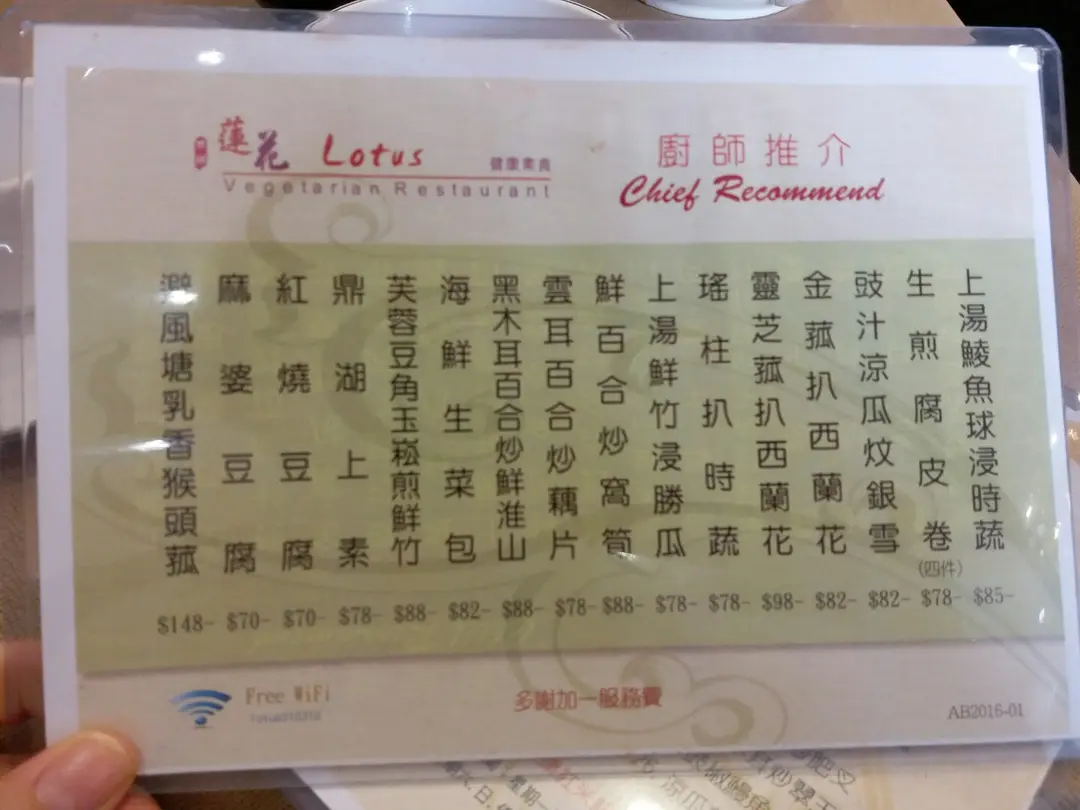 蓮花 Lotus 健康素食
Vegetarian Restaurant
廚師推介
Chief Recommend
上湯鯪魚球浸時蔬
$85-
生煎腐皮卷
(四件)
$78-
豉汁涼瓜炆銀雪
$82-
金菰扒西蘭花
$82-
靈芝菰扒西蘭花
$98-
瑤柱扒時蔬
$78-
上湯鮮竹浸勝瓜
$78-
鮮百合炒窩筍
$88-
雲耳百合炒藕片
$78-
黑木耳百合炒鮮淮山
$88-
海鮮生菜包
$82-
芙蓉豆角玉崧煎鮮竹
$88-
鼎湖上素
$78-
紅燒豆腐
$70-
麻婆豆腐
$70-
避風塘乳香猴頭菰
$148-
Free WiFi
多謝加一服務費
AB2016-01